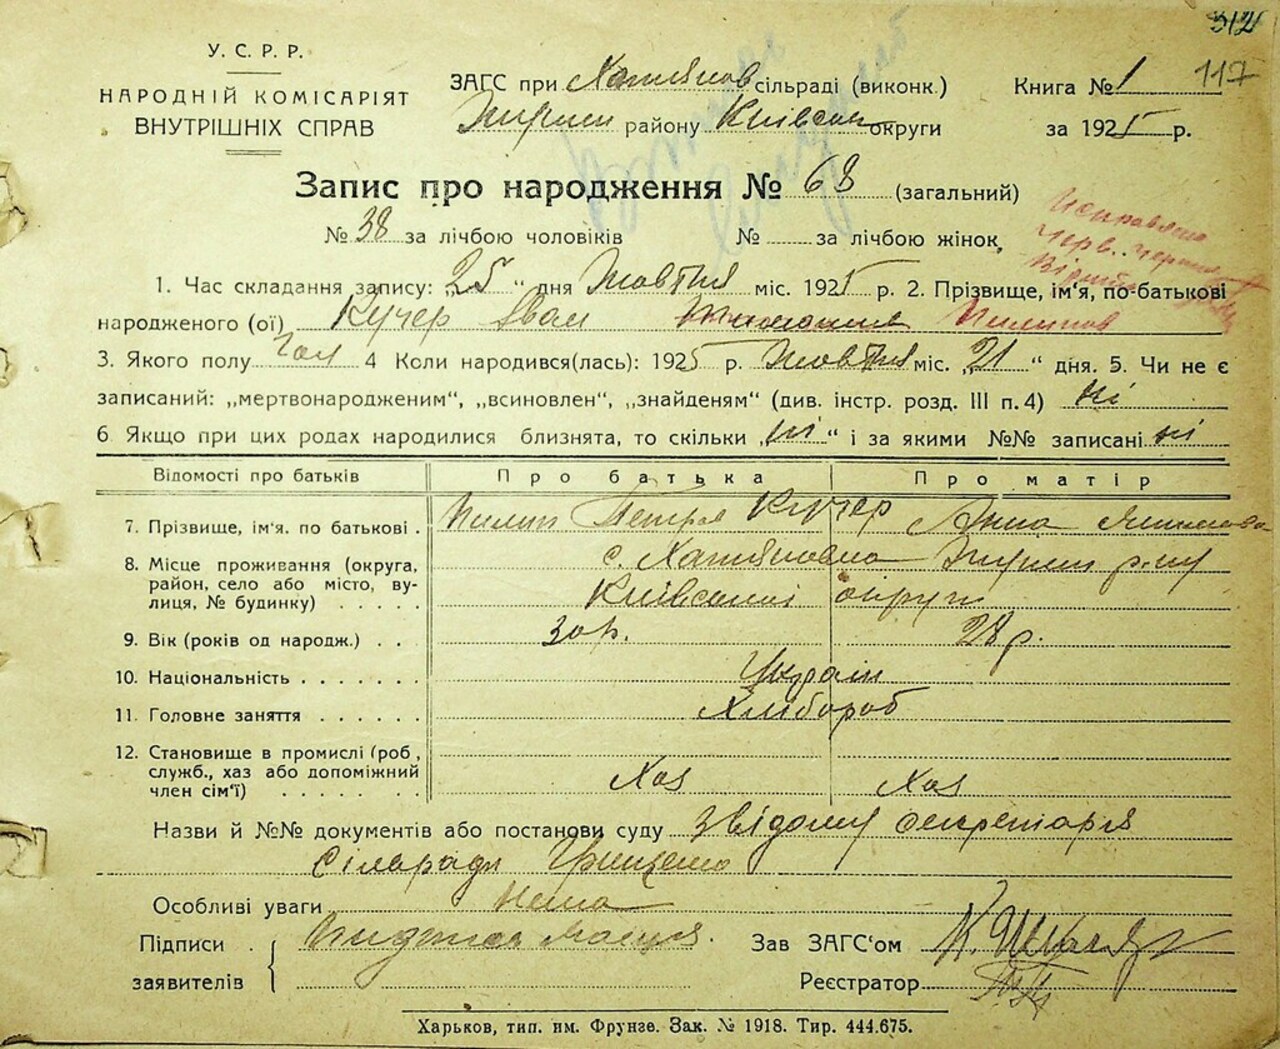 312
117
У. С. Р. Р.
НАРОДНІЙ КОМІСАРІЯТ
ВНУТРІШНІХ СПРАВ
ЗАГС при сільраді (виконк.)
району Київськ округи
Книга № 1
за 1925 р.
Запис про народження № 68 (загальний)
№ 38 за лічбою чоловіків № за лічбою жінок,
1. Час складання запису: „25“ дня Жовтня міс. 1925 р. 2. Прізвище, ім‘я, по-батькові
народженого (ої) Кучер Іван Пилипов
3. Якого полу чол 4 Коли народився(лась): 1925 р. Жовтня міс. „21“ дня. 5. Чи не є
записаний: „мертвонародженим“, „всиновлен“, „знайденям“ (див. інстр. розд. III п. 4) ні
6 Якщо при цих родах народилися близнята, то скільки „ні“ і за якими №№ записані ні
Відомості про батьків Про батька Про матір
7. Прізвище, ім‘я. по батькові . Пилип Петров Кучер Анна
8. Місце проживання (округа,
район, село або місто, ву-
лиця, № будинку) . . . . . Київської округи
9. Вік (років од народж.) . . 30 р. 28 р.
10. Національність . . . . . . . Україн
11. Головне заняття . . . . . . Хлібороб
12. Становище в промислі (роб,
служб., хаз або допоміжний
член сім‘ї) . . . . . . . Хаз Хаз
Назви й №№ документів або постанови суду З відому секретаря
сільради Грищенко
Особливі уваги нема
Підписи
заявителів
Зав ЗАГС‘ом
Реєстратор
Харьков, тип. им. Фрунзе. Зак. № 1918. Тир. 444.675.